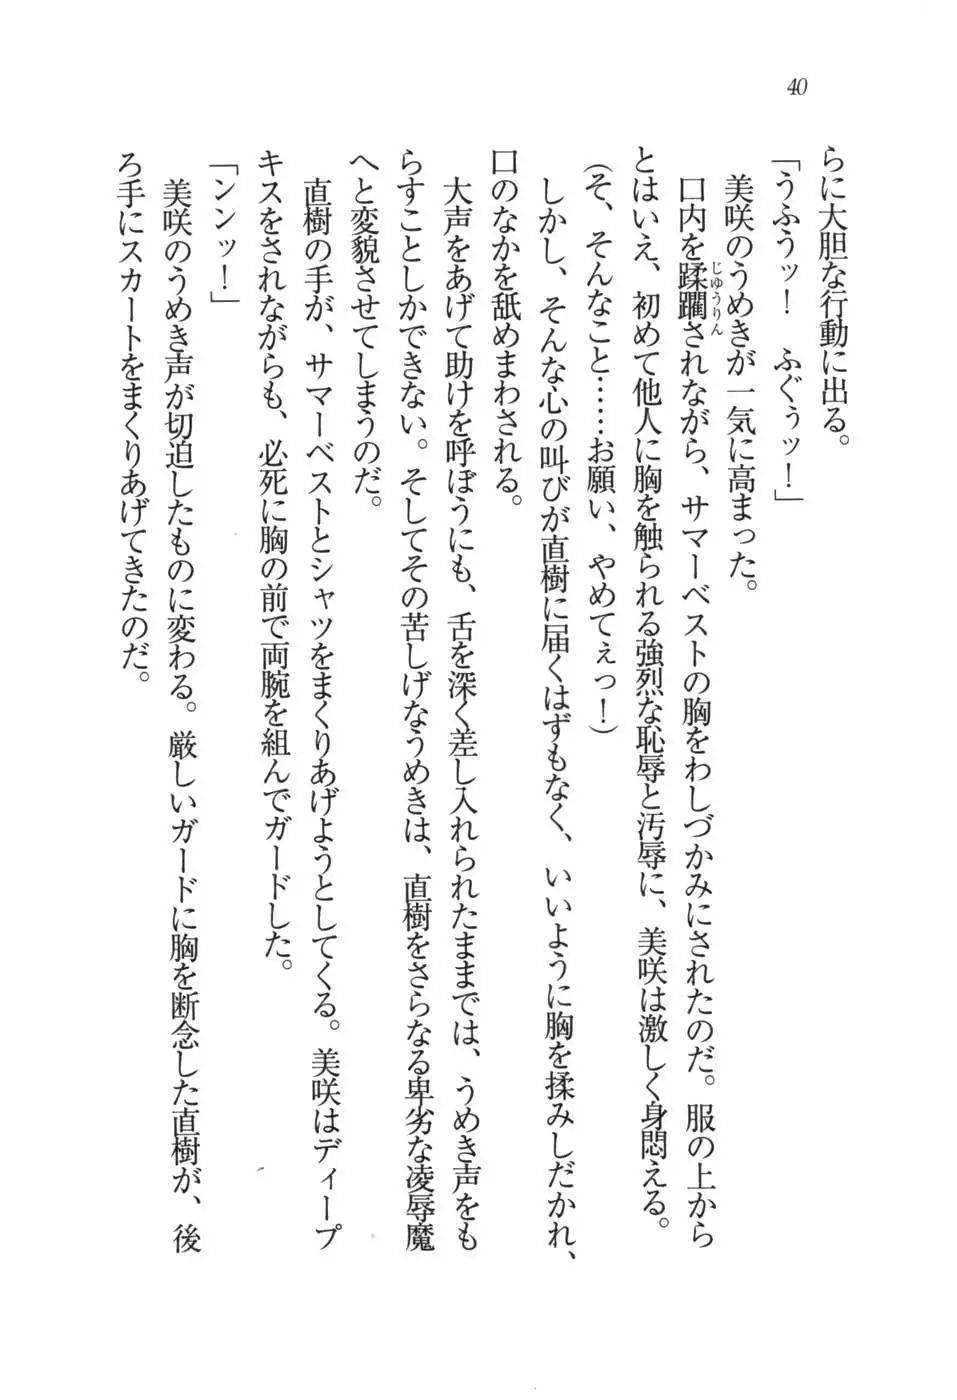 40
らに大胆な行動に出る。
「うふうッ！　ふぐぅッ！」
美咲のうめきが一気に高まった。
口内を蹂躙じゅうりんされながら、サマーベストの胸をわしづかみにされたのだ。服の上から
とはいえ、初めて他人に胸を触られる強烈な恥辱と汚辱に、美咲は激しく身悶える。
（そ、そんなこと……お願い、やめてぇっ！）
しかし、そんな心の叫びが直樹に届くはずもなく、いいように胸を揉みしだかれ、
口のなかを舐めまわされる。
大声をあげて助けを呼ぼうにも、舌を深く差し入れられたままでは、うめき声をも
らすことしかできない。そしてその苦しげなうめきは、直樹をさらなる卑劣な凌辱魔
へと変貌させてしまうのだ。
直樹の手が、サマーベストとシャツをまくりあげようとしてくる。美咲はディープ
キスをされながらも、必死に胸の前で両腕を組んでガードした。
「ンンッ！」
美咲のうめき声が切迫したものに変わる。厳しいガードに胸を断念した直樹が、後
ろ手にスカートをまくりあげてきたのだ。